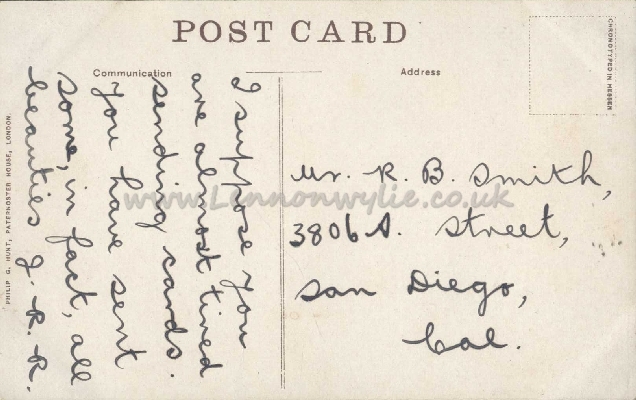 POST CARD
Communication
Address
CHRONOTYPED IN HESSEN
I suppose you
are almost tired
sending cards.
You have sent
some, in fact, all
beauties J. R. R.
Mr. R. B. Smith,
3806 A. Street,
San Diego,
Cal.
PHILIP G. HUNT, PATERNOSTER HOUSE, LONDON.
www.Lennonwylie.co.uk